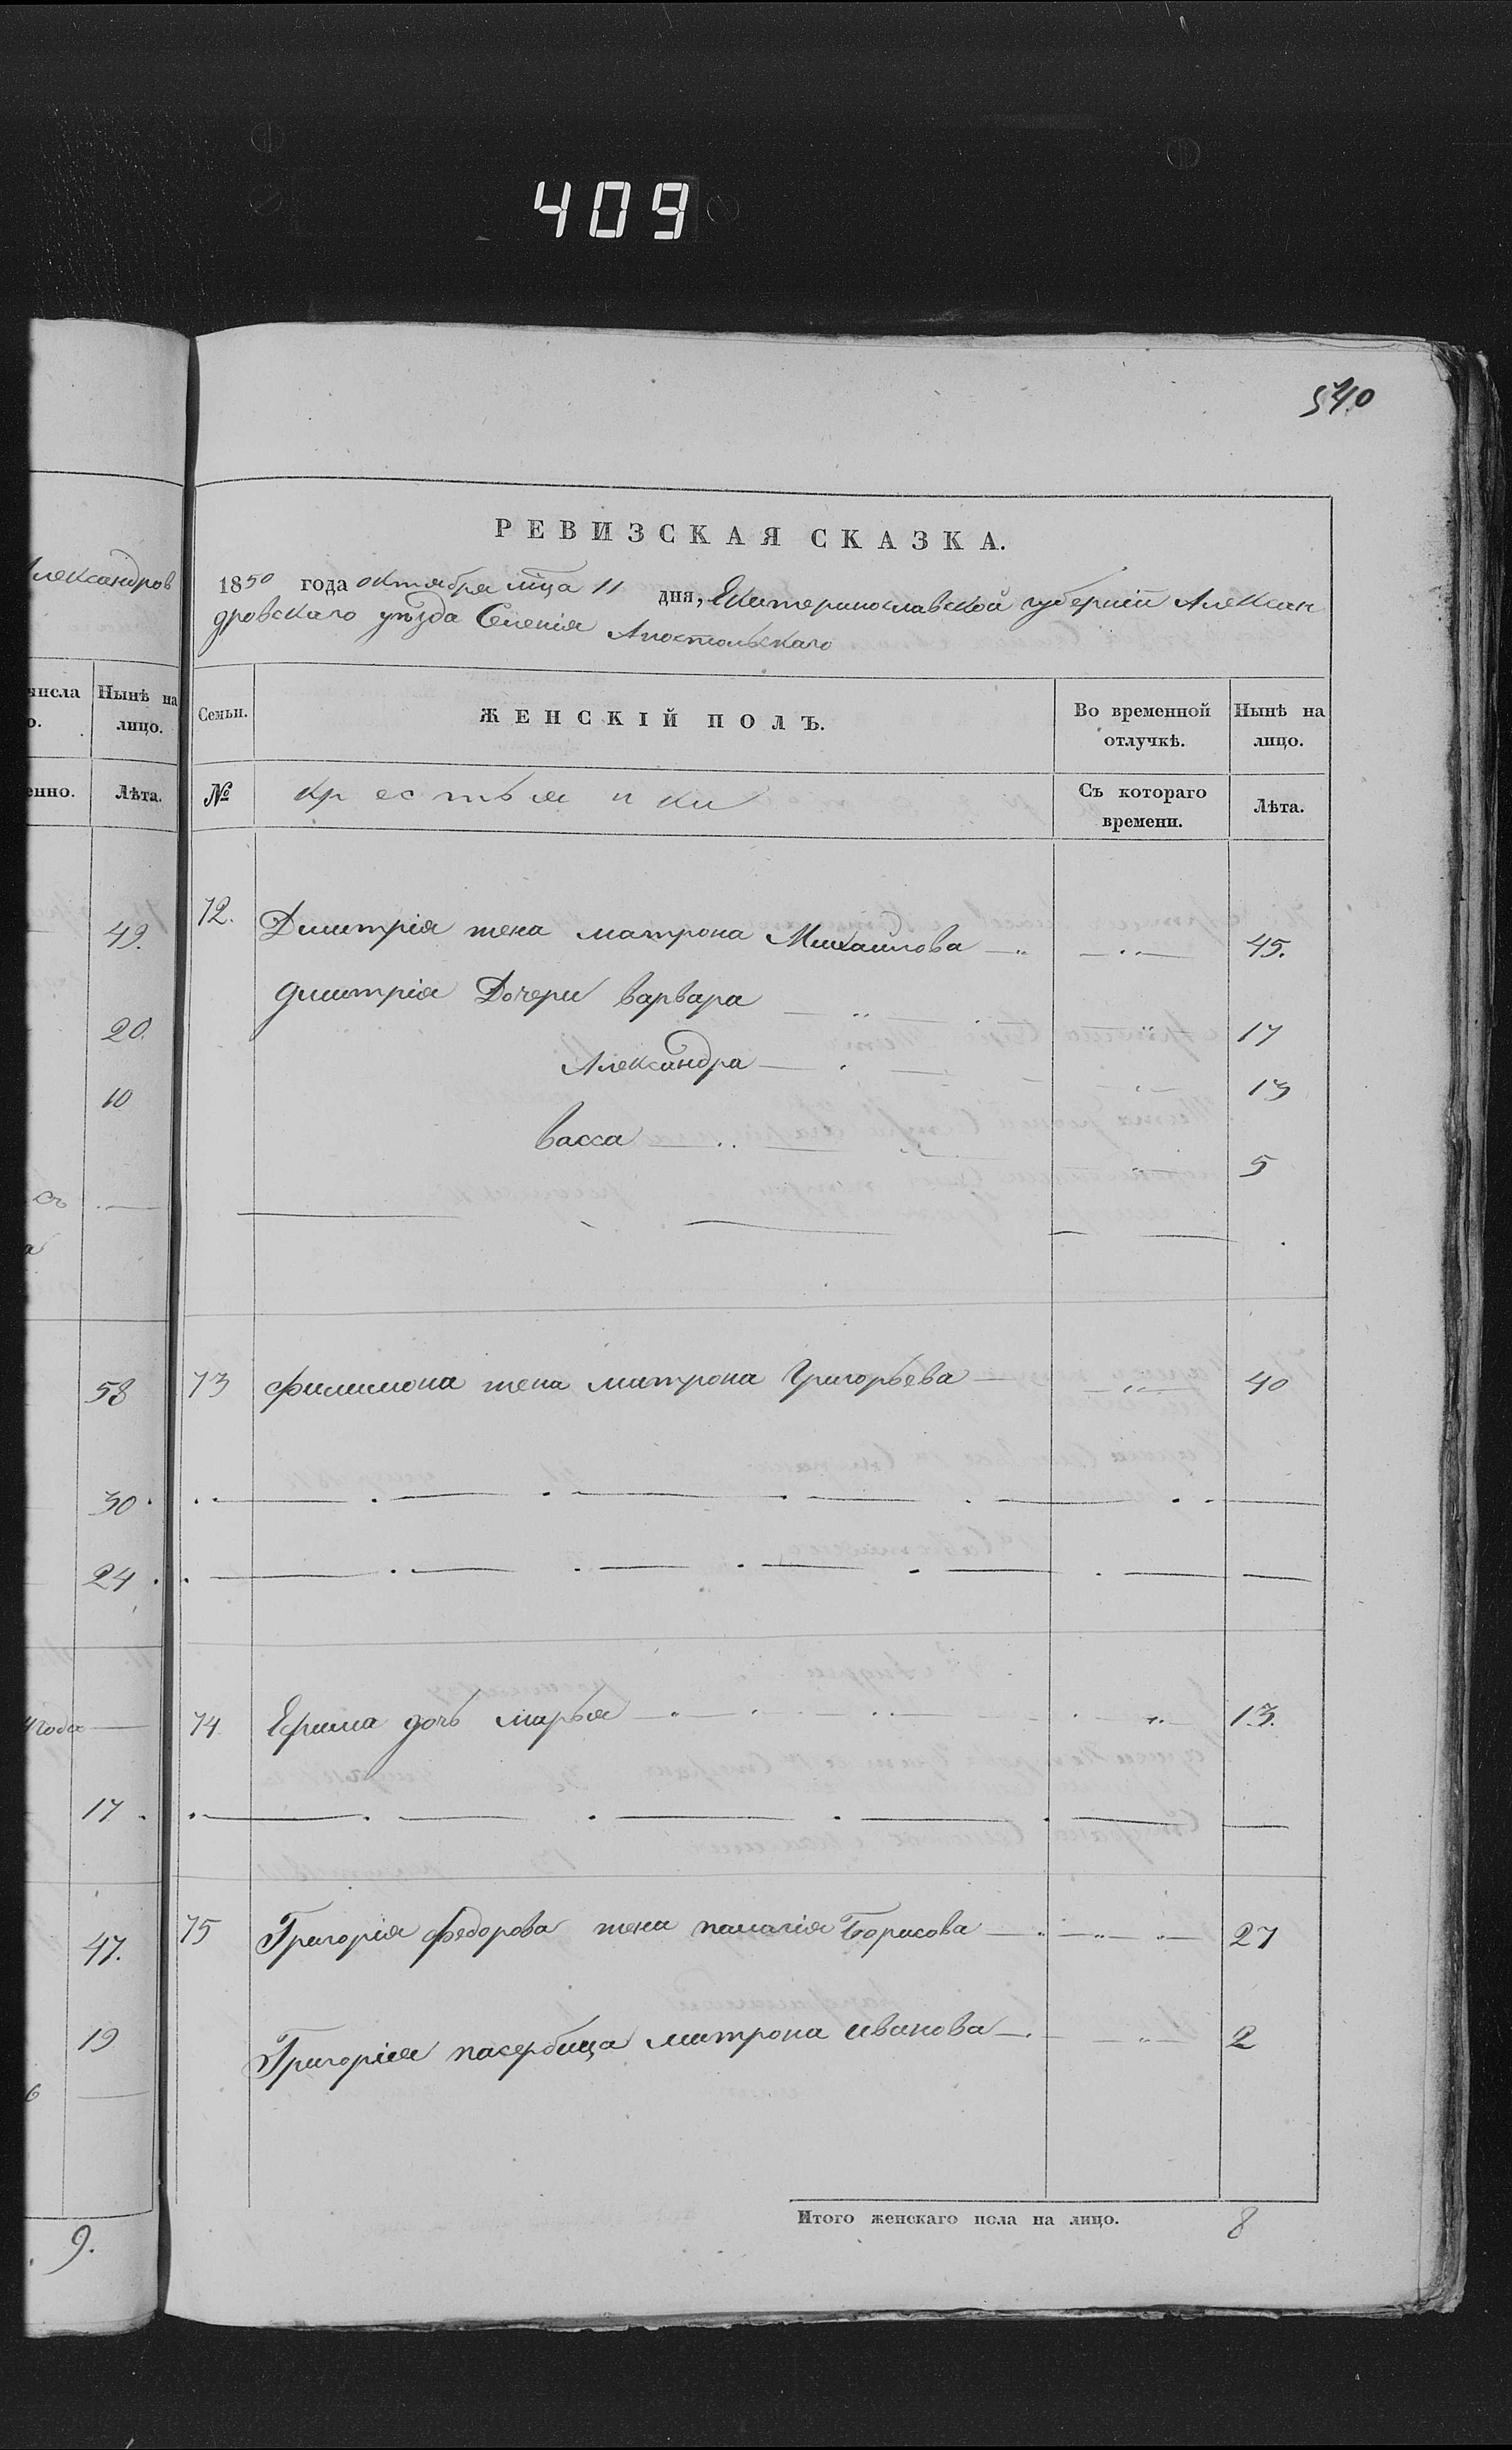 409
540
Александров
числа
Нынѣ на
лицо.
Лѣта.
49.
20.
10
58
30
24
года
17
47.
19
9.
РЕВИЗСКАЯ СКАЗКА.
1850 года октября мца 11 дня, Екатеринославской губерніи Алексан
дровскаго уѣзда Селенія Апостольскаго
Семьи. ЖЕНСКІЙ ПОЛЪ. Во временной отлучкѣ. Нынѣ на лицо.
№ крестьянки Съ котораго времени. Лѣта.
72. Димитрія жена матрона Михайлова 45.
димитрія Дочери варвара 17
Александра 13
васса 5
73 филимона жена матрона Григорьева 40
74 Ефима дочь марья 13.
75 Григорія федорова жена палагія Борисова 27
Григорія пасербица матрона иванова 2
Итого женскаго пола на лицо. 8